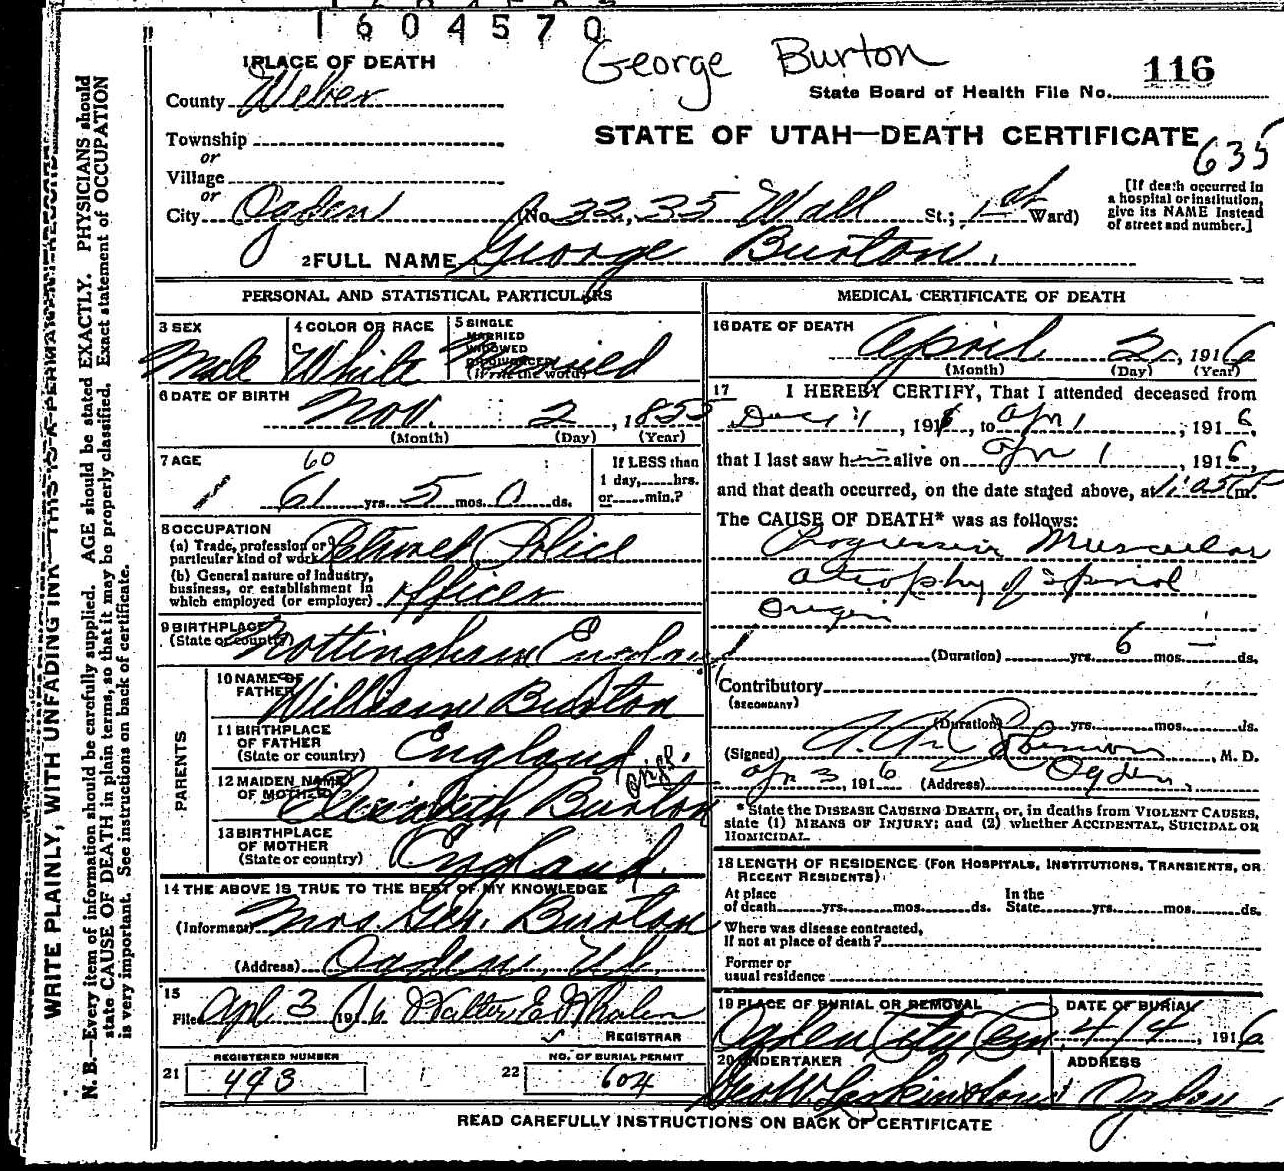 1604570
George Burton
116
1 PLACE OF DEATH
State Board of Health File No.
County Weber
STATE OF UTAH—DEATH CERTIFICATE
635
Township
or
Village
or
City Ogden (No. 3235 Wall St.; 1st Ward)
[If death occurred in
a hospital or institution,
give its NAME instead
of street and number.]
2 FULL NAME George Burton.
PERSONAL AND STATISTICAL PARTICULARS
3 SEX
Male
4 COLOR OR RACE
White
5 SINGLE
MARRIED
WIDOWED
OR DIVORCED
(Write the word)
Married
6 DATE OF BIRTH
Nov. 2, 1855
(Month) (Day) (Year)
7 AGE
60
61 yrs. 5 mos. 0 ds.
If LESS than
1 day, hrs.
or min.?
8 OCCUPATION
(a) Trade, profession or
particular kind of work Retired Police
(b) General nature of industry,
business, or establishment in
which employed (or employer) Officer
9 BIRTHPLACE
(State or country) Nottingham England
PARENTS
10 NAME OF
FATHER William Burton
11 BIRTHPLACE
OF FATHER
(State or country) England.
12 MAIDEN NAME
OF MOTHER Elizabeth Burton
13 BIRTHPLACE
OF MOTHER
(State or country) England.
14 THE ABOVE IS TRUE TO THE BEST OF MY KNOWLEDGE
(Informant) Mrs Geo. Burton
(Address) Ogden, Ut.
15
Filed Apl. 3 1916 Walter E Whalen
REGISTRAR
REGISTERED NUMBER
21 493
NO. OF BURIAL PERMIT
22 604
MEDICAL CERTIFICATE OF DEATH
16 DATE OF DEATH
April 2, 1916
(Month) (Day) (Year)
17 I HEREBY CERTIFY, That I attended deceased from
191, to Apr 1, 1916,
that I last saw h alive on Apr 1, 1916,
and that death occurred, on the date stated above, at m.
The CAUSE OF DEATH* was as follows:
Progressive Muscular
atrophy of spinal
Origin
(Duration) yrs. 6 mos. — ds.
Contributory
(SECONDARY)
(Duration) yrs. mos. ds.
(Signed) Robinson, M. D.
Apr 3, 1916 (Address) Ogden,
* State the DISEASE CAUSING DEATH, or, in deaths from VIOLENT CAUSES,
state (1) MEANS OF INJURY; and (2) whether ACCIDENTAL, SUICIDAL OR
HOMICIDAL.
18 LENGTH OF RESIDENCE (FOR HOSPITALS, INSTITUTIONS, TRANSIENTS, OR
RECENT RESIDENTS).
At place
of death yrs. mos. ds.
In the
State yrs. mos. ds.
Where was disease contracted,
if not at place of death?
Former or
usual residence
19 PLACE OF BURIAL OR REMOVAL
Ogden City Cem
DATE OF BURIAL
4/4, 1916
20 UNDERTAKER
ADDRESS
Ogden
READ CAREFULLY INSTRUCTIONS ON BACK OF CERTIFICATE
WRITE PLAINLY, WITH UNFADING INK—THIS IS A PERMANENT RECORD
N. B.—Every item of information should be carefully supplied. AGE should be stated EXACTLY. PHYSICIANS should
state CAUSE OF DEATH in plain terms, so that it may be properly classified. Exact statement of OCCUPATION
is very important. See instructions on back of certificate.